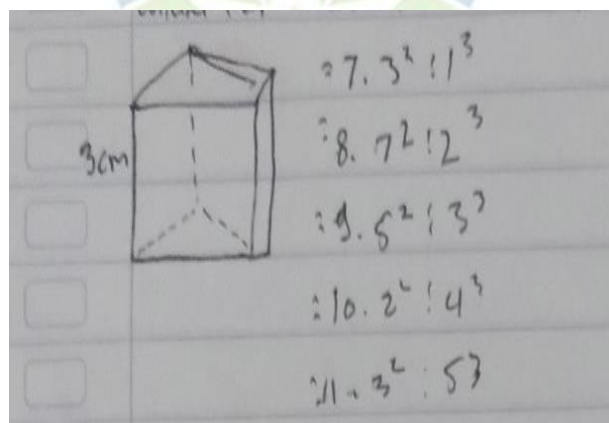 : 7. 3² : 1³
: 8. 7² : 2³
3cm
: 9. 5² : 3³
: 10. 2² : 4³
: 11. 3² : 53